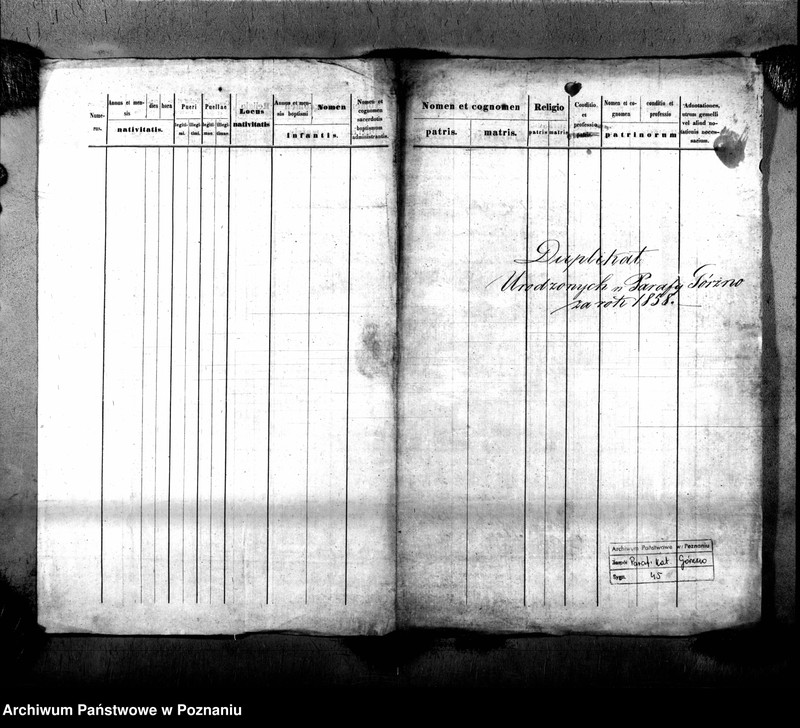 Nume-
rus.
Annus et men-
sis
dies
hora
nativitatis.
Pueri
legiti-
mi.
illegi-
timi.
Puellae
legiti-
mae.
illegi-
timae.
Locus
nativitatis
Annus et men-
sis baptismi
Nomen
infantis.
Nomen et
cognomen
sacerdotis
baptismum
administrantis.
Nomen et cognomen
patris.
matris.
Religio
patris
matris
Conditio
et
professio
patris.
Nomen et co-
gnomen
conditio et
professio
patrinorum
Adnotationes,
utrum gemelli
vel aliud no-
tationis neces-
sarium.
Duplikat
Urodzonych w Parafy Górzno
za rok 1858.
Archiwum Państwowe w Poznaniu
Zespół Paraf. kat. Górzno
Sygn. 45
Archiwum Państwowe w Poznaniu